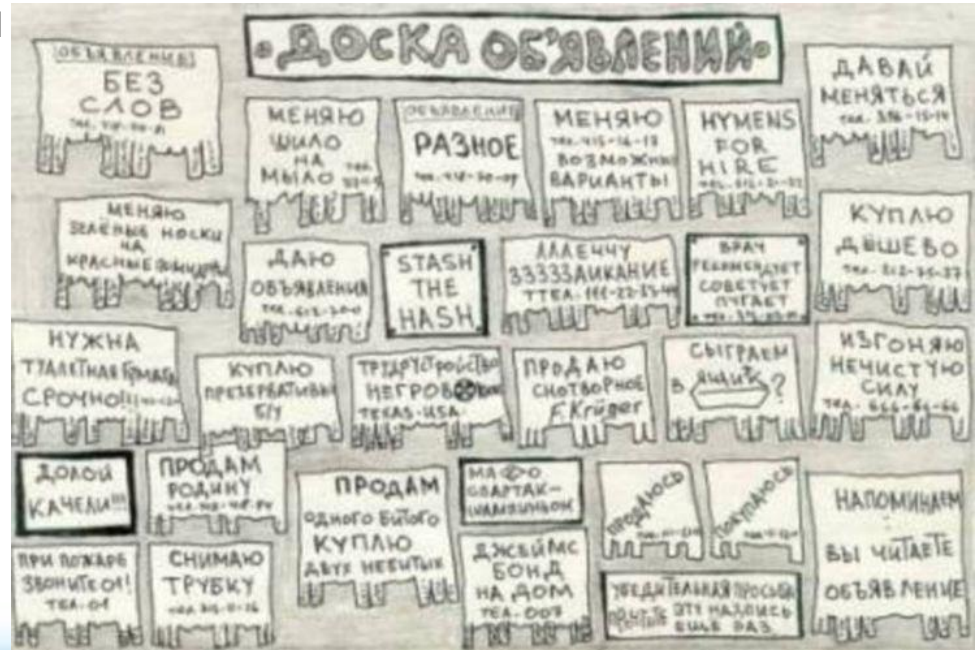 ДОСКА ОБЪЯВЛЕНИЙ
ОБЪЯВЛЕНИЕ
БЕЗ
СЛОВ
МЕНЯЮ
ШИЛО
НА
МЫЛО
ОБЪЯВЛЕНИЕ
РАЗНОЕ
МЕНЯЮ
ВОЗМОЖНЫ
ВАРИАНТЫ
HYMENS
FOR
HIRE
ДАВАЙ
МЕНЯТЬСЯ
МЕНЯЮ
ЗЕЛЁНЫЕ НОСКИ
НА
КРАСНЫЕ
ДАЮ
ОБЪЯВЛЕНИЯ
STASH
THE
HASH
ЛЛЛЕЧЧУ
ЗЗЗЗЗАИКАНИЕ
ТТЕЛ.
ВРАЧ
РЕКОМЕНДУЕТ
СОВЕТУЕТ
ПУГАЕТ
КУПЛЮ
ДЁШЕВО
НУЖНА
ТУАЛЕТНАЯ БУМАГА
СРОЧНО!!!
КУПЛЮ
ПРЕЗЕРВАТИВЫ
Б/У
ТРУДУСТРОЙСТВО
НЕГРОВ
TEXAS-USA
ПРОДАЮ
СНОТВОРНОЕ
F.Krüger
СЫГРАЕМ
В ЯЩИК?
ИЗГОНЯЮ
НЕЧИСТУЮ
СИЛУ
ДОЛОЙ
КАЧЕЛИ!!!
ПРОДАМ
РОДИНУ
ПРОДАМ
ОДНОГО БИТОГО
КУПЛЮ
ДВУХ НЕБИТЫХ
СПАРТАК-
ПРОДАЮСЬ
ПОКУПАЮСЬ
НАПОМИНАЕМ
ВЫ ЧИТАЕТЕ
ОБЪЯВЛЕНИЕ
ПРИ ПОЖАРЕ
ЗВОНИТЕ 01!
ТЕЛ. 01
СНИМАЮ
ТРУБКУ
ДЖЕЙМС
БОНД
НА ДОМ
ТЕЛ. 007
УБЕДИТЕЛЬНАЯ ПРОСЬБА
ЭТУ НАДПИСЬ
ЕЩЁ РАЗ